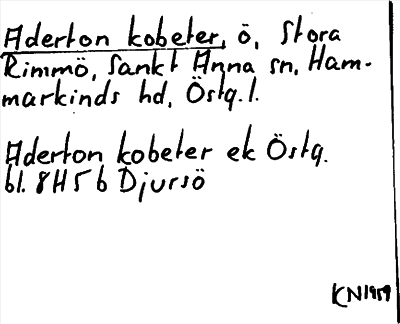 Aderton kobeter, ö, Stora
Rimmö, Sankt Anna sn, Ham-
markinds hd, Östg. l.
Aderton kobeter ek Östg.
bl. 8H5b Djursö
KN1959